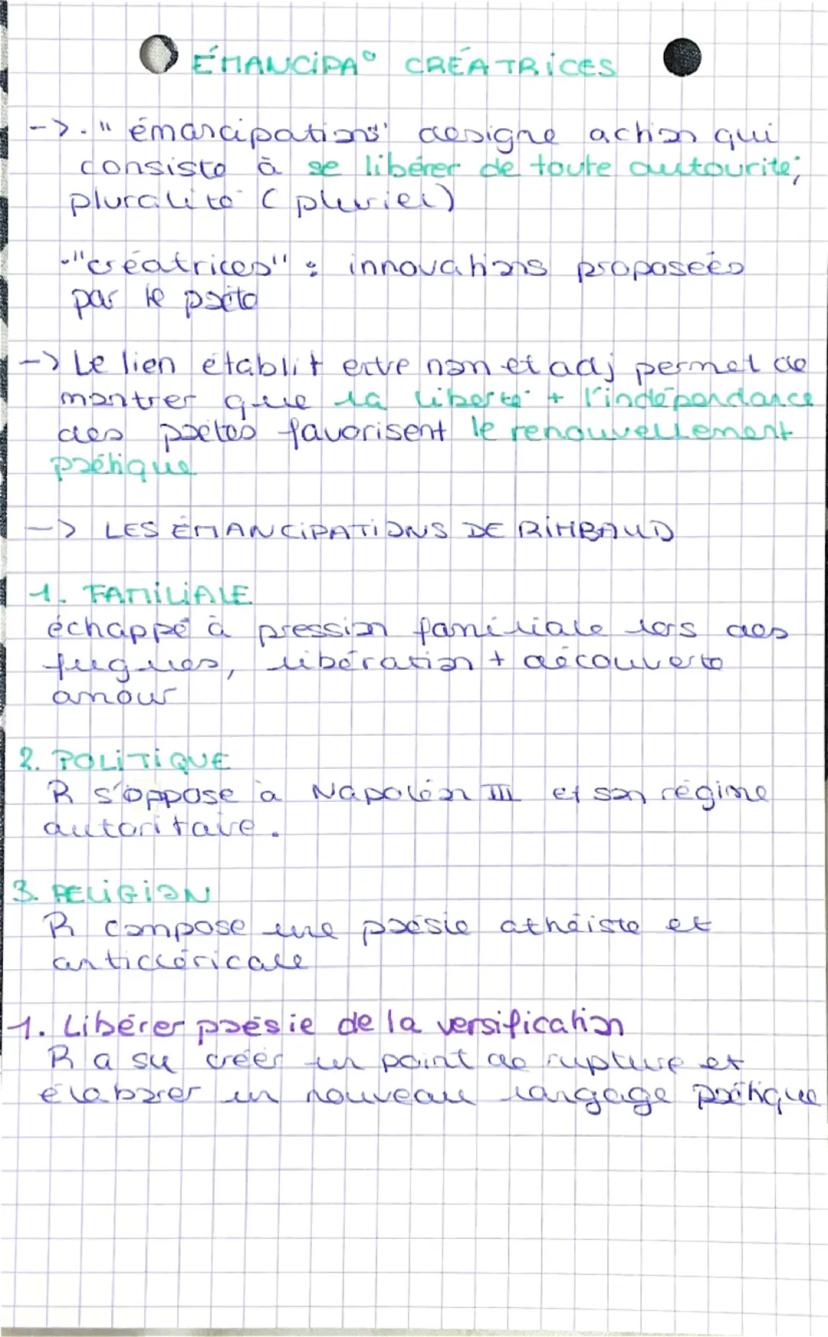 ÉMANCIPA° CRÉATRICES
->. "émancipations" designe action qui
consiste à se libérer de toute autourité;
pluralité (pluriel)
."créatrices" : innovations proposées
par le poète
-> Le lien établit entre nom et adj permet de
montrer que la liberté + l'indépendance
des poètes favorisent le renouvellement
poétique
-> LES ÉMANCIPATIONS DE RIMBAUD
1. FAMILIALE
échappé à pression familiale lors des
fugues, libération + découverte
amour
2. POLITIQUE
R s'oppose à Napoléon III et son régime
autoritaire.
3. RELIGION
R compose une poésie athéiste et
anticléricale
1. Libérer poésie de la versification
R a su créer un point de rupture et
élaborer un nouveau langage poétique